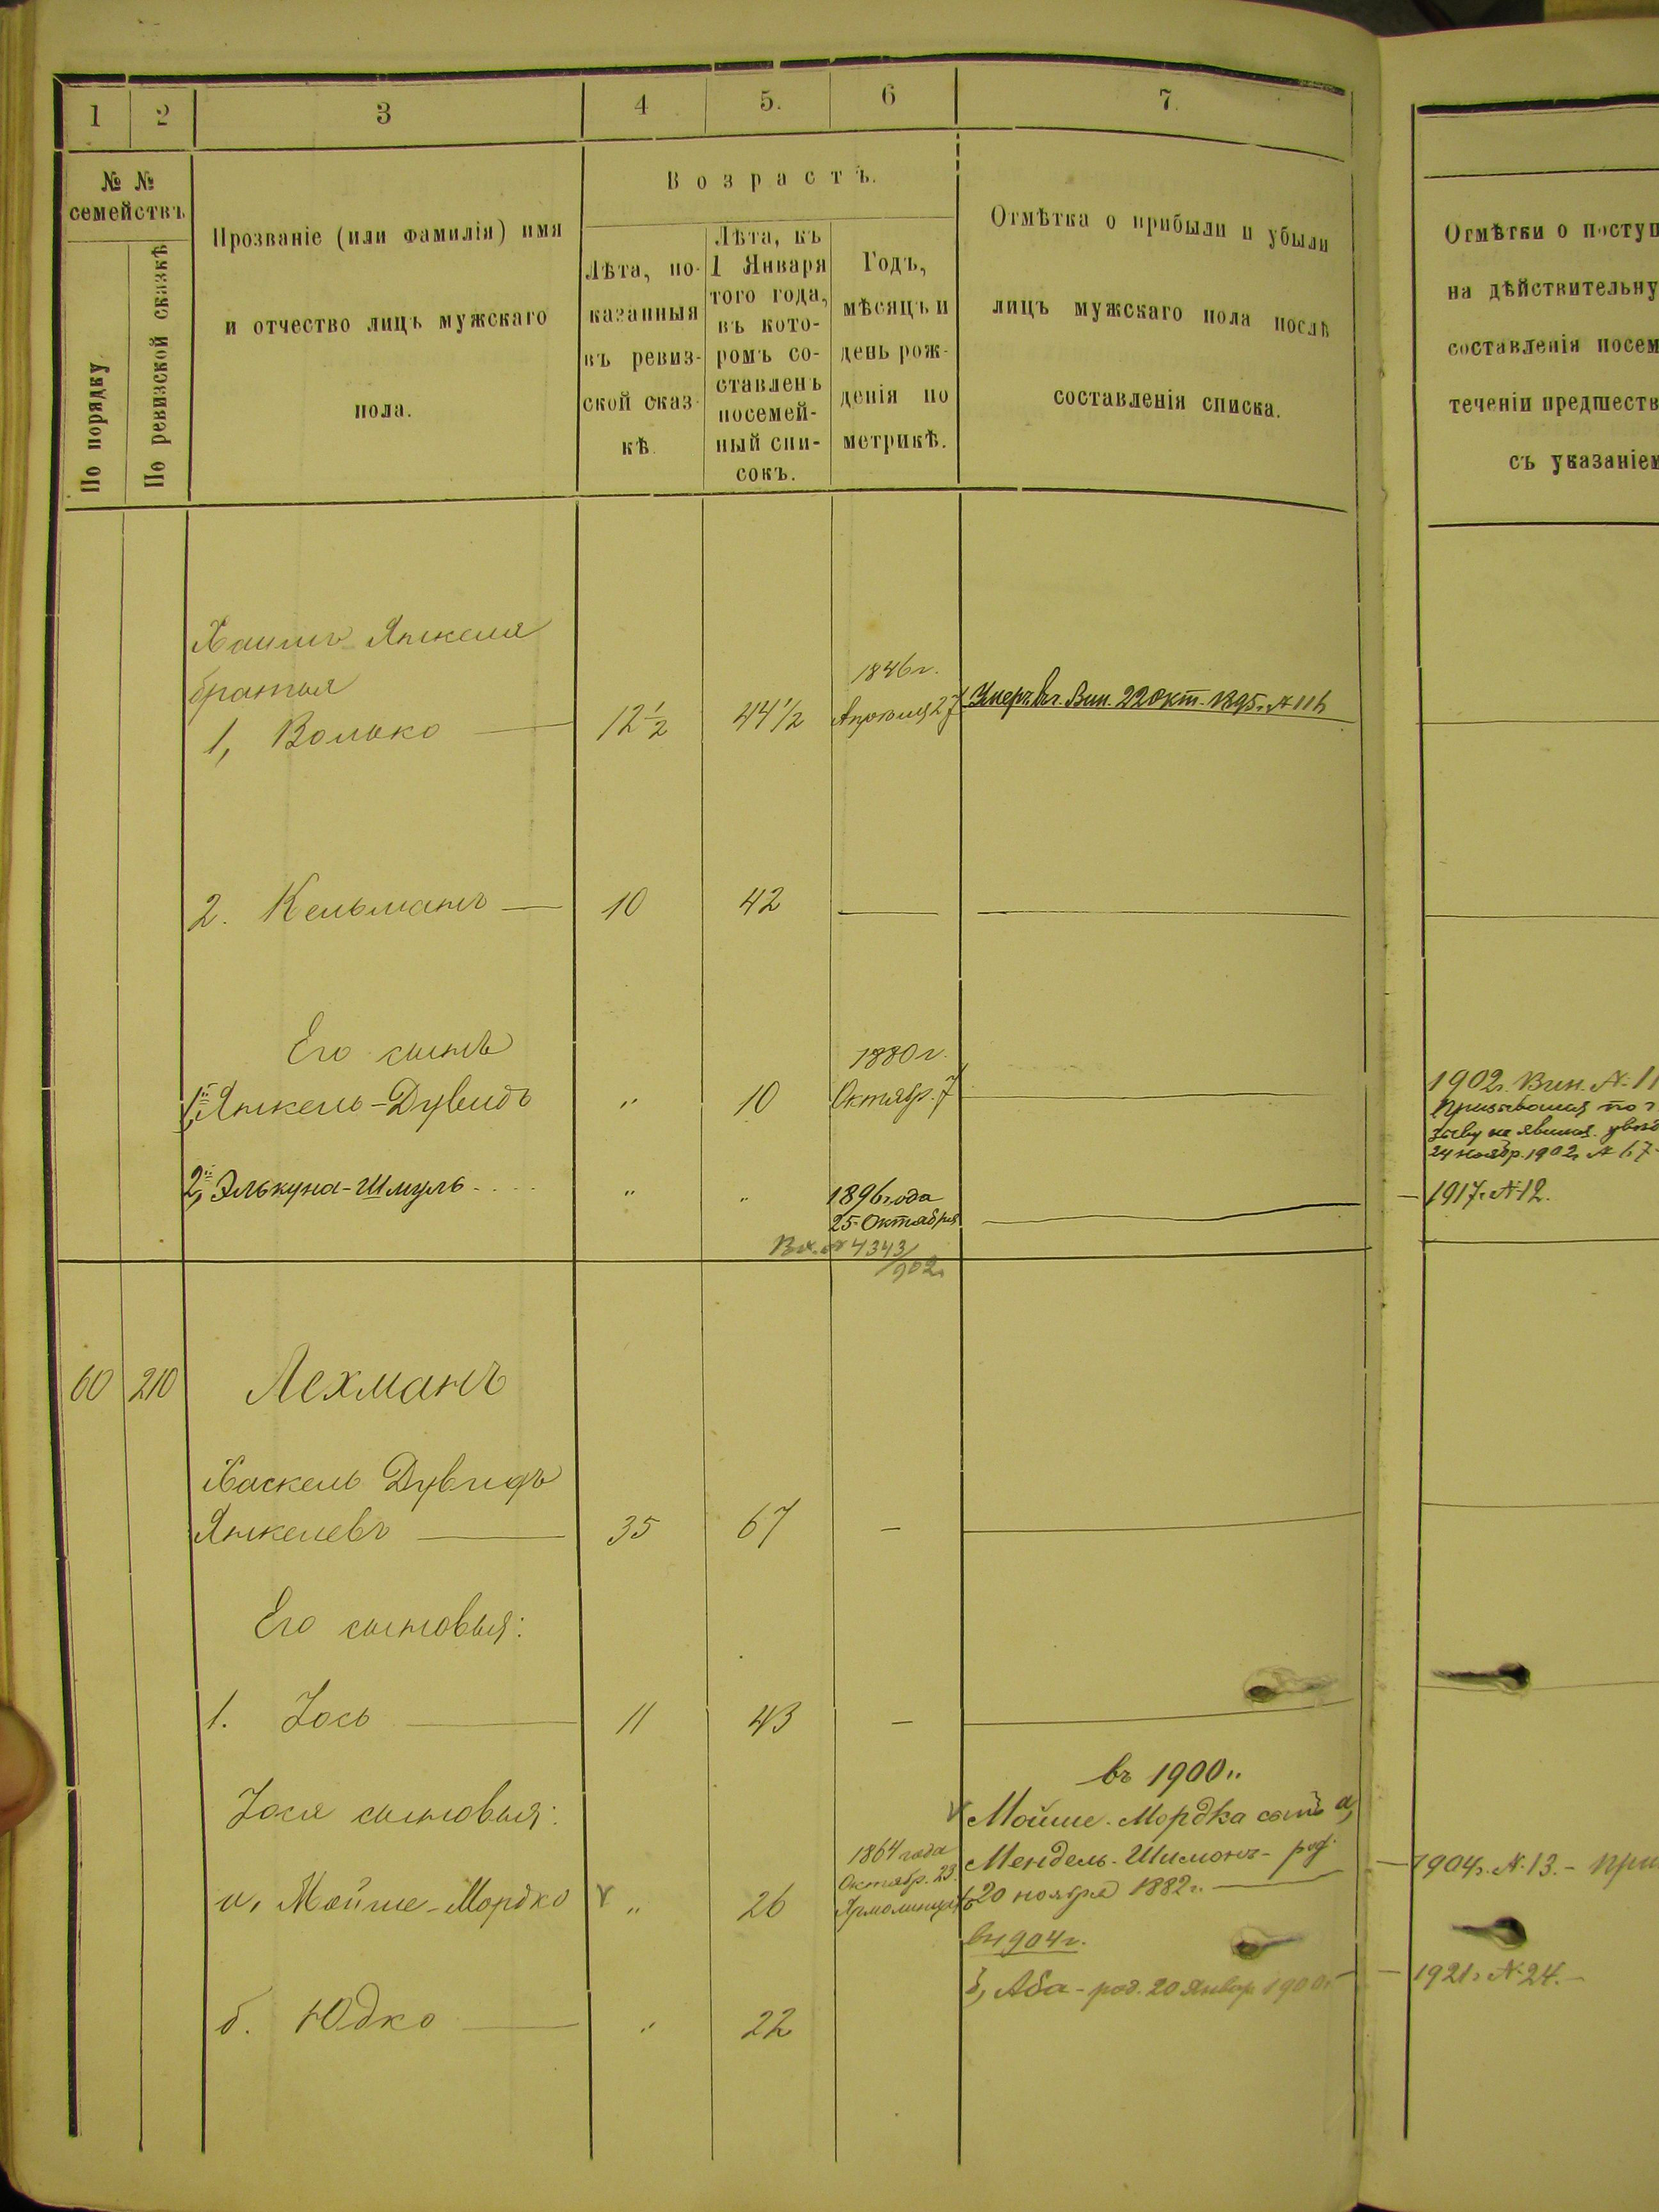 1 2 3 4 5. 6 7.
№ №
семействъ
По порядку
По ревизской сказкѣ
Прозваніе (или фамилія) имя
и отчество лицъ мужскаго
пола.
Возрастъ.
Лѣта, по-
казанныя
въ ревиз-
ской сказ-
кѣ.
Лѣта, къ
1 Января
того года,
въ кото-
ромъ со-
ставленъ
посемей-
ный спи-
сокъ.
Годъ,
мѣсяцъ и
день рож-
денія по
метрикѣ.
Отмѣтка о прибыли и убыли
лицъ мужскаго пола послѣ
составленія списка.
Отмѣтки о поступ
на дѣйствительну
составленія посем
теченіи предшеств
съ указаніем
Хаимъ Янкеля
братья
1846 г.
1, Волько — 12 ½ 44 ½ Апрѣля 27 Умеръ въ г. Вин. 22 Окт. 1895 г. №
2. Кельманъ — 10 42 —
Его сынъ 1880 г.
1, Янкель-Дувидъ " 10 Октябр. 7
1902 г. Вин. №
24 ноябр. 1902 г. №
2, Элькуна-Шмуль " " 1896 года — 1917 г. № 12.
25 Октября
Вх. № 4343/902
60 210 Лехманъ
Хаскель Дувидъ
Янкелевъ — 35 67 —
Его сыновья:
1. Іось — 11 43 —
въ 1900 г.
Іося сыновья: Мойше-Мордка сынъ а,
1864 года Мендель-Шимонъ - род. — 1904 г. № 13. -
Октябр. 23
а, Мойше-Мордко " 26 Ярмолинцы 20 ноября 1882 г.
въ 1904 г.
б, Аба - род. 20 Январ. 1900 г. — 1921 г. № 24. -
б. Юдко — " 22